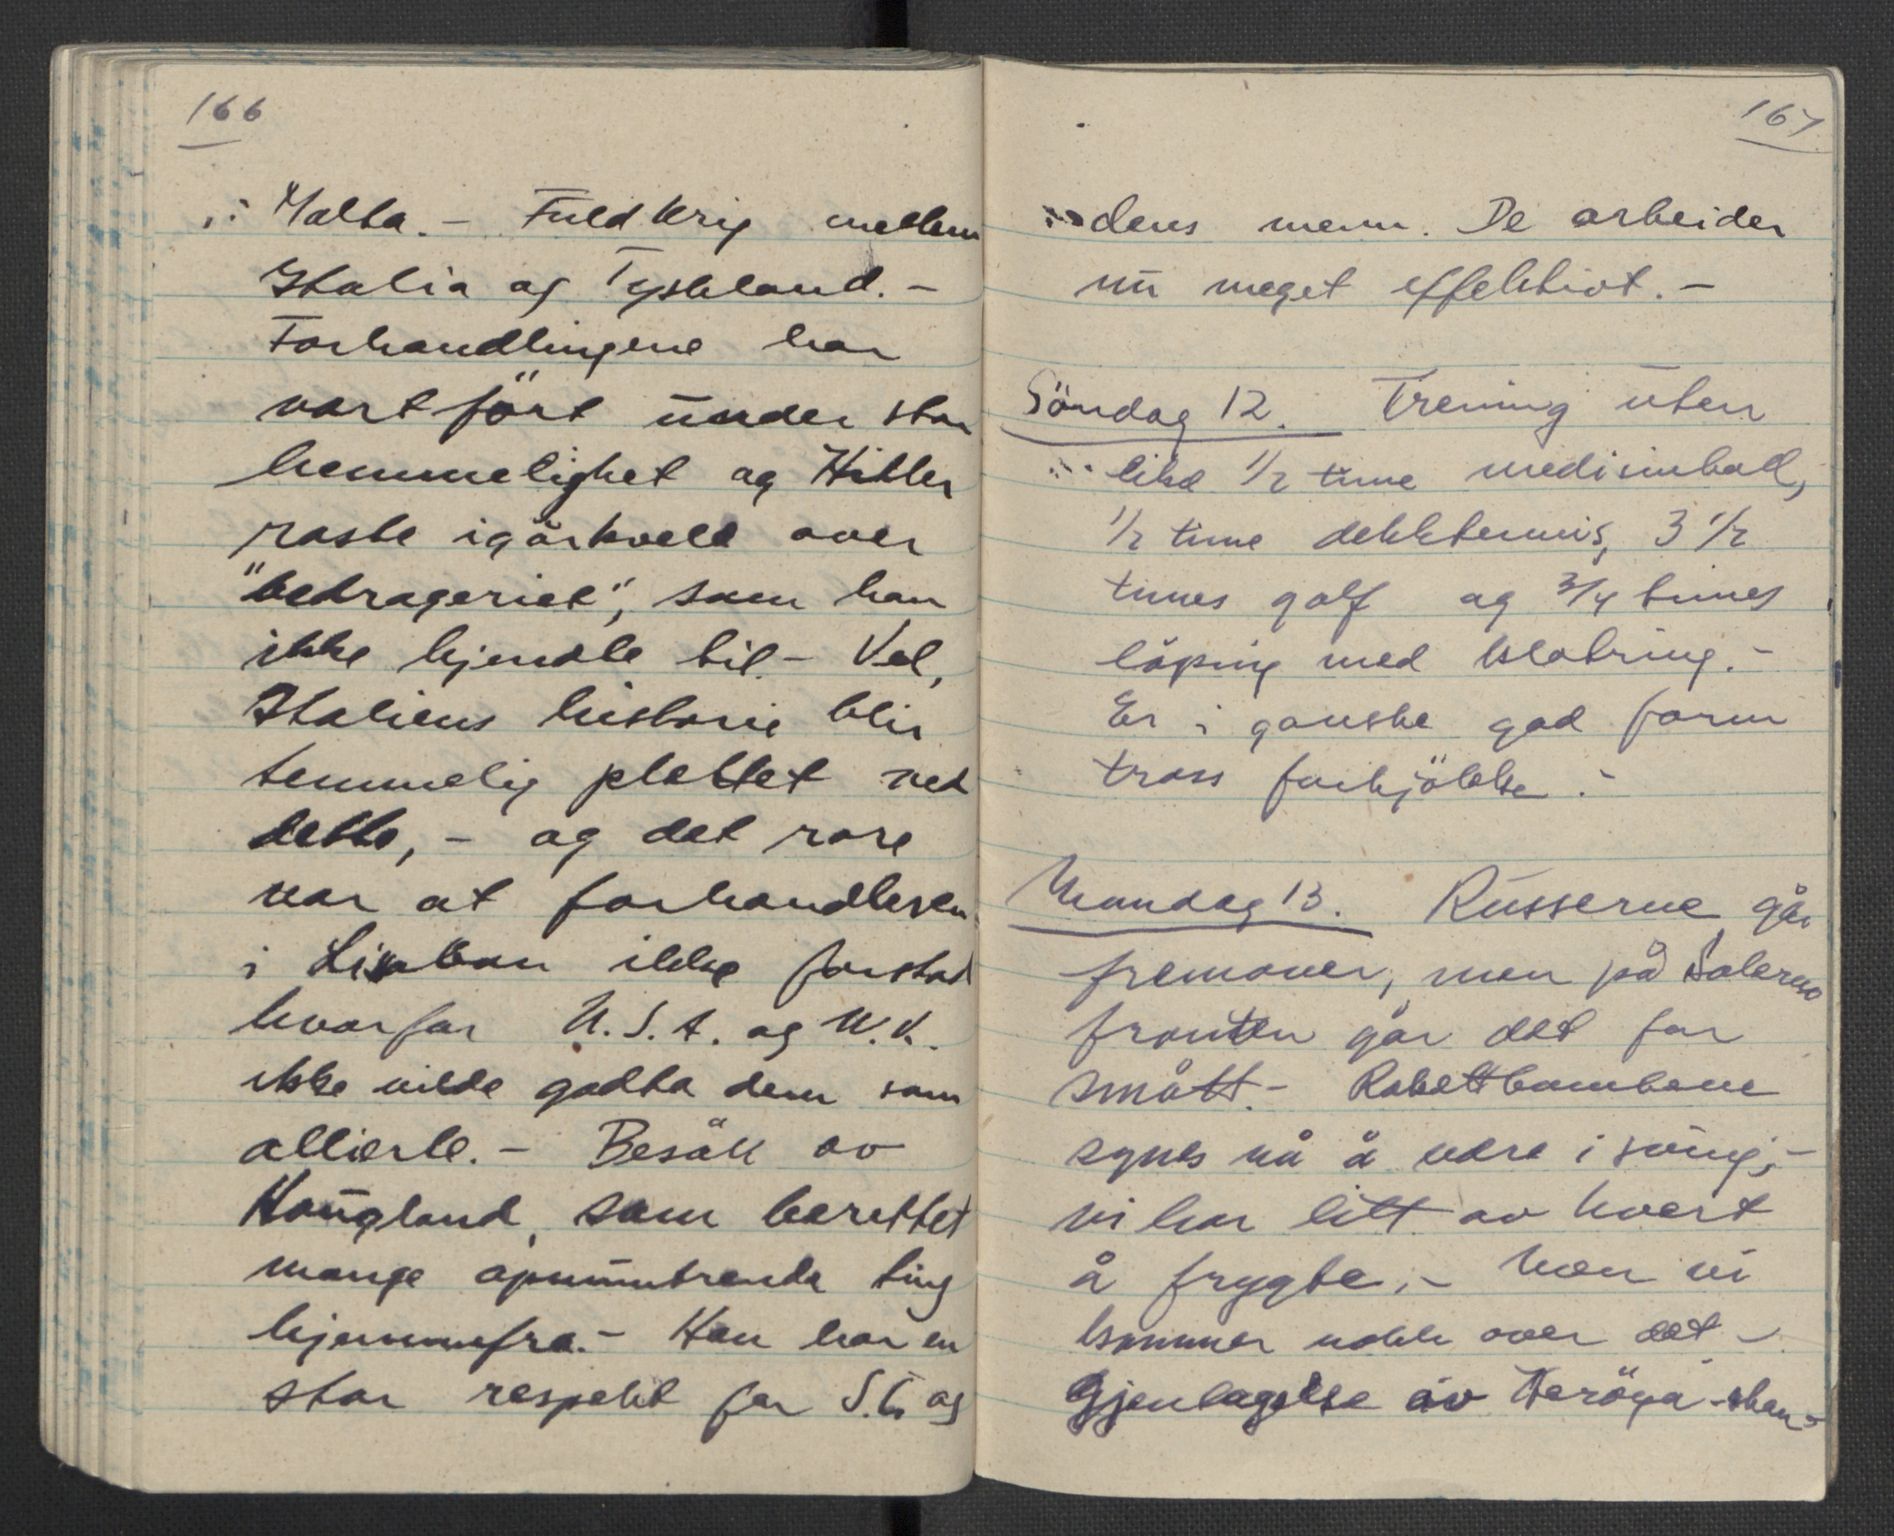 166
i Malta. - Fuld krig mellem
Italia og Tyskland. -
Forhandlingene har
vært ført under stor
hemmelighet og Hitler
raste igårkveld over
"bedrageriet", som han
ikke kjendte til. - Vel,
Italiens historie blir
temmelig plettet ved
dette, - og det rare
var at forhandleren
i Lisabon ikke forstod
hvorfor U.S.A. og U.K.
ikke vilde godta dem som
allierte. - Besök av
Haugland, som berettet
mange opmuntrende ting
hjemmefra. - Han har en
stor respekt for S.C. og
167
dens menn. De arbeider
nu meget effektivt. -
Söndag 12. Trening uten
like 1/2 time medisinball,
1/2 time dekktennis, 3 1/2
times golf og 3/4 times
löping med klatring. -
Er i ganske god form
tross forkjölelse. -
Mandag 13. Russerne går
fremover, men på Salerno
fronten går det for
smått. - Rakettbombene
synes nå å være i sving, -
vi har litt av hvert
å frygte, - men vi
kommer nokk over det -
Gjentagelse av Heröya-skan-